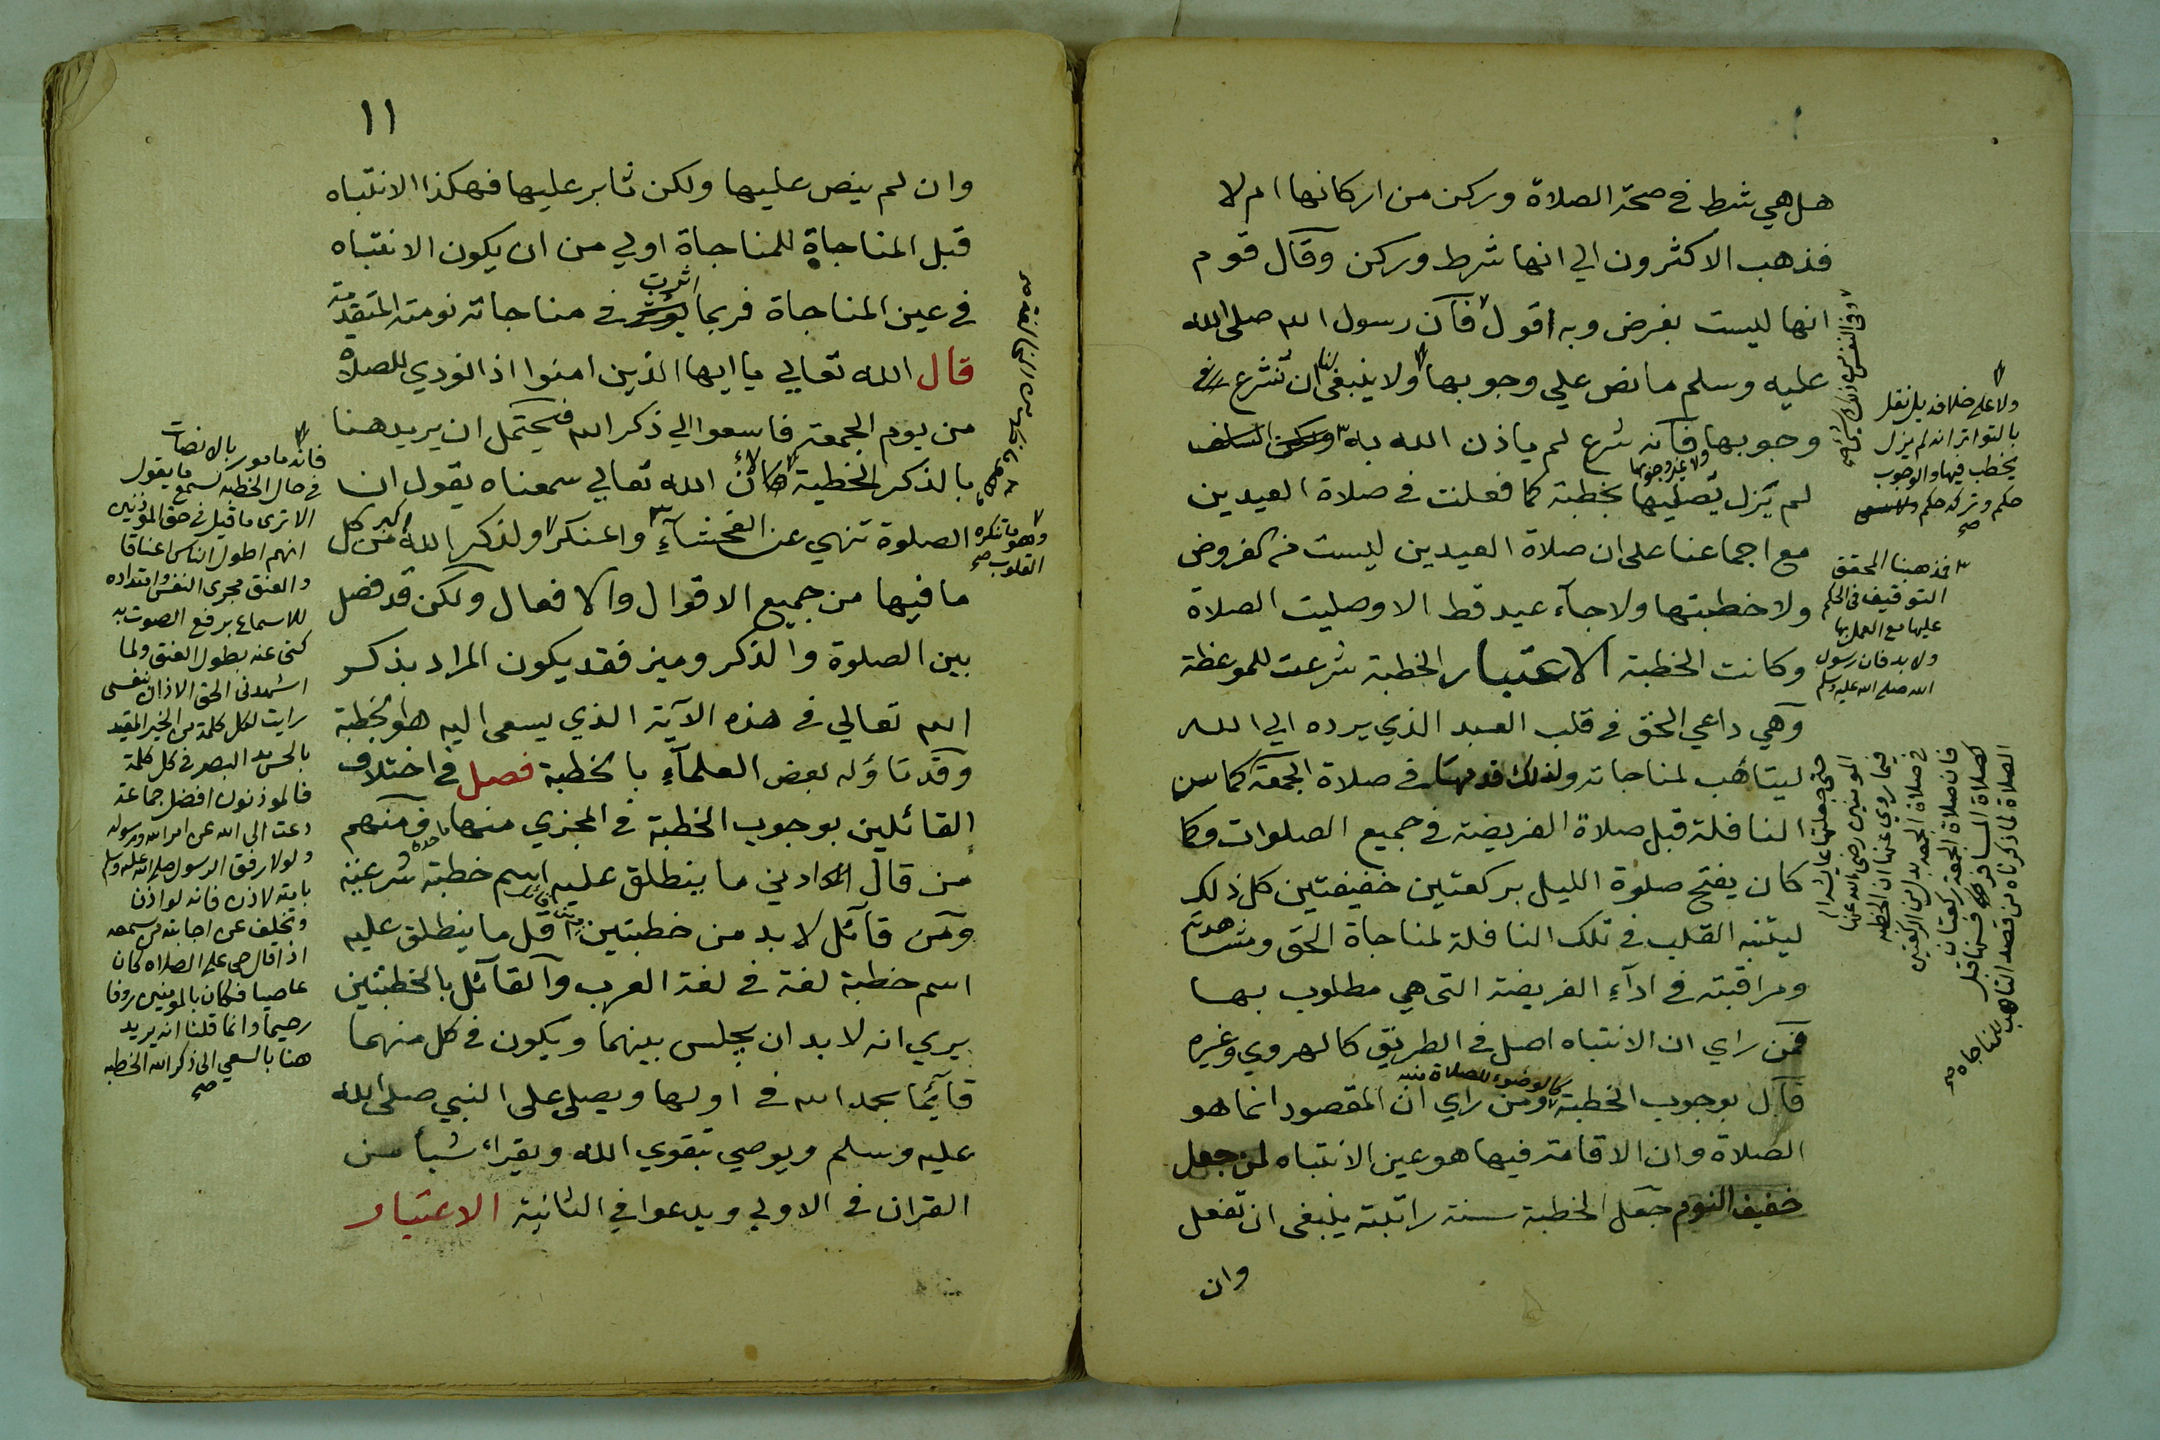 هل هي شرط في صحة الصلاة وركن من اركانها ام لا
فذهب الاكثرون الي انها شرط وركن وقال قوم
انها ليست بفرض وبه اقول فان رسول الله صلى الله
عليه وسلم ما نص علي وجوبها ولا ينبغي لنا ان نشرع
وجوبها فانه شرع لم ياذن الله به ولكن السلف
لم يزل يصليها بخطبة كما فعلت في صلاة العيدين
مع اجماعنا على ان صلاة العيدين ليست من الفروض
ولا خطبتها ولا جآء عيد قط الا وصليت الصلاة
وكانت الخطبة الاعتبار الخطبة شرعت للموعظة
وهي داعي الحق في قلب العبد الذي يرده الي الله
ليتاهب لمناجاته ولذلك قدمها في صلاة الجمعة كما سن
النافلة قبل صلاة الفريضة في جميع الصلوات وكا
كان يفتح صلوة الليل بركعتين خفيفتين كل ذلك
ليتنبه القلب في تلك النافلة لمناجاة الحق ومشاهدته
ومراقبته في ادآء الفريضة التي هي مطلوب بها
فمن راي ان الانتباه اصل في الطريق كالهروي وغيره
كالوضوء للصلاة
قال بوجوب الخطبة ومن راي ان المقصود انما هو
الصلاة وان الاقامة فيها هو عين الانتباه لمن جعل
خفيف النوم جعل الخطبة سنة راتبة ينبغي ان تفعل
وان
ولا على خلافه بل نقل
بالتواتر انه لم يزل
يخطب فيها والوجوب
حكم وتركه حكم
صح
فمذهبنا المحقق
التوقيف في الحكم
عليها مع العمل بها
ولا بد فان رسول
الله صلى الله عليه وسلم
حتى جعلتها عائشة ام
المومنين رضي الله عنها
فيما روي عنها ان الخطبة
في صلاة الجمعة بدل من الركعتين
فان صلاة الجمعة ركعتان
كصلاة المسافر فسنها قبل
الصلاة لما ذكرناه من قصد التاهب للمناجاه صح
١١
وان لم ينص عليها ولكن ثابر عليها فهكذا الانتباه
قبل المناجاة للمناجاة اولي من ان يكون الانتباه
في عين المناجاة فربما اثرت في مناجاته نومته المتقدمة
قال الله تعالي يا ايها الذين امنوا اذا نودي للصلاة
من يوم الجمعة فاسعوا الي ذكر الله فيحتمل ان يريد هنا
بالذكر الخطبة لان الله تعالي سمعناه يقول ان
الصلوة تنهي عن الفحشآء والمنكر ولذكر الله اكبر من كل
ما فيها من جميع الاقوال والافعال ولكن قد فصل
بين الصلوة والذكر وميز فقد يكون المراد بذكر
الله تعالي في هذه الآية الذي يسعى اليه هو الخطبة
وقد تاوله بعض العلمآء بالخطبة فصل في اختلاف
القائلين بوجوب الخطبة في المجزي منها فمنهم
من قال ادني ما ينطلق عليه اسم خطبة شرعية
ومن قآئل لا بد من خطبتين اقل ما ينطلق عليه
اسم خطبة لغة في لغة العرب والقآئل بالخطبتين
يري انه لا بد ان يجلس بينهما ويكون في كل منهما
قآئما يحمد الله في اولها ويصلي على النبي صلى الله
عليه وسلم ويوصي بتقوي الله ويقراء شيأ من
القران في الاولي ويدعوا في الثانية الاعتبار
وهو ما تنكره
القلوب صح
فانه مامور بالانصات
في حال الخطبة ليسمع ما يقول
الا ترى ما قيل في حق المؤذنين
انهم اطول الناس اعناقا
والعنق مجرى النفس وامتداده
للاسماع برفع الصوت به
كنى عنه بطول العنق ولما
اشهدني الحق الاذان بنفسى
رايت لكل كلمة من الخير المقيد
بالحس مد البصر في كل كلمة
فالموذنون افضل جماعة
دعت الى الله عن امر الله ورسوله
ولولا رفق الرسول صلى الله عليه وسلم
بامته لاذن فانه لو اذن
وتخلف عن اجابته من سمعه
اذا قال حي على الصلاه كان
عاصيا فكان بالمومنين روفا
رحيما وانما قلنا انه يريد
هنا بالسعي الى ذكر الله الخطبة
صح